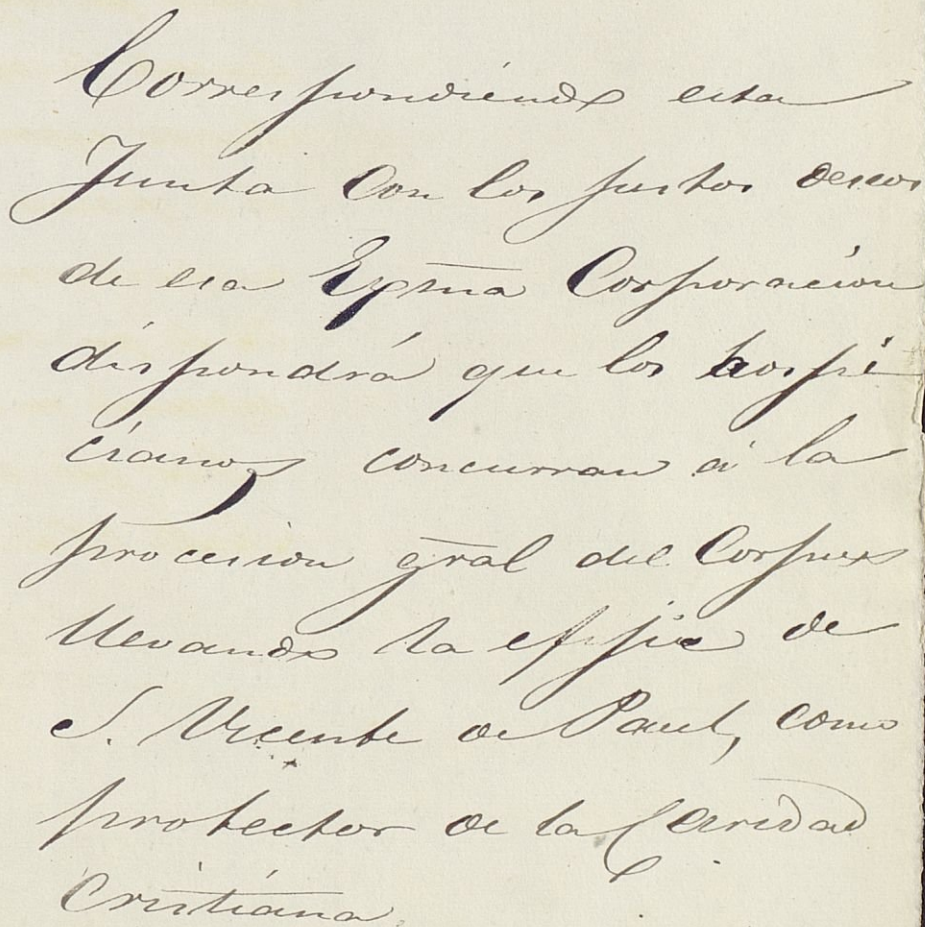 Correspondiendo esta
Junta con los justos deseos
de esa Exma Corporacion
dispondrá que los hospi
cianos concurran á la
procesion gral del Corpus
llevando la efijie de
S. Vicente de Paul, como
protector de la Caridad
Cristiana.